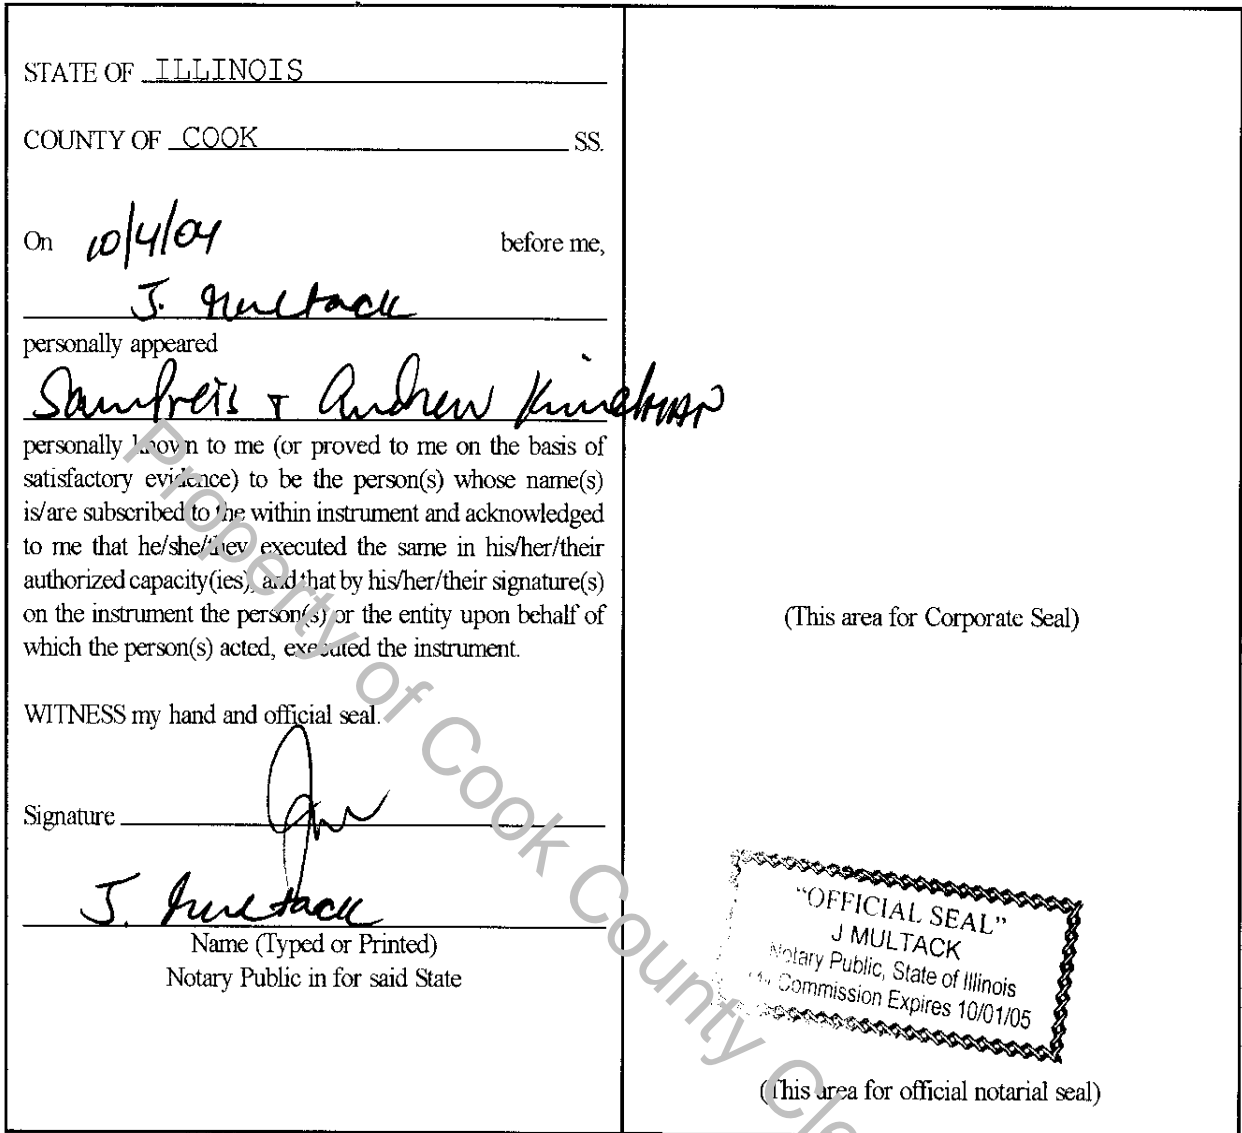 STATE OF ILLINOIS
COUNTY OF COOK SS.
On 10/4/04 before me,
J. Multack
personally appeared
Sam & Andrew
personally known to me (or proved to me on the basis of
satisfactory evidence) to be the person(s) whose name(s)
is/are subscribed to the within instrument and acknowledged
to me that he/she/they executed the same in his/her/their
authorized capacity(ies), and that by his/her/their signature(s)
on the instrument the person(s) or the entity upon behalf of
which the person(s) acted, executed the instrument.
WITNESS my hand and official seal.
Signature
J. Multack
Name (Typed or Printed)
Notary Public in for said State
(This area for Corporate Seal)
"OFFICIAL SEAL"
J MULTACK
Notary Public, State of Illinois
My Commission Expires 10/01/05
(This area for official notarial seal)
Property of Cook County